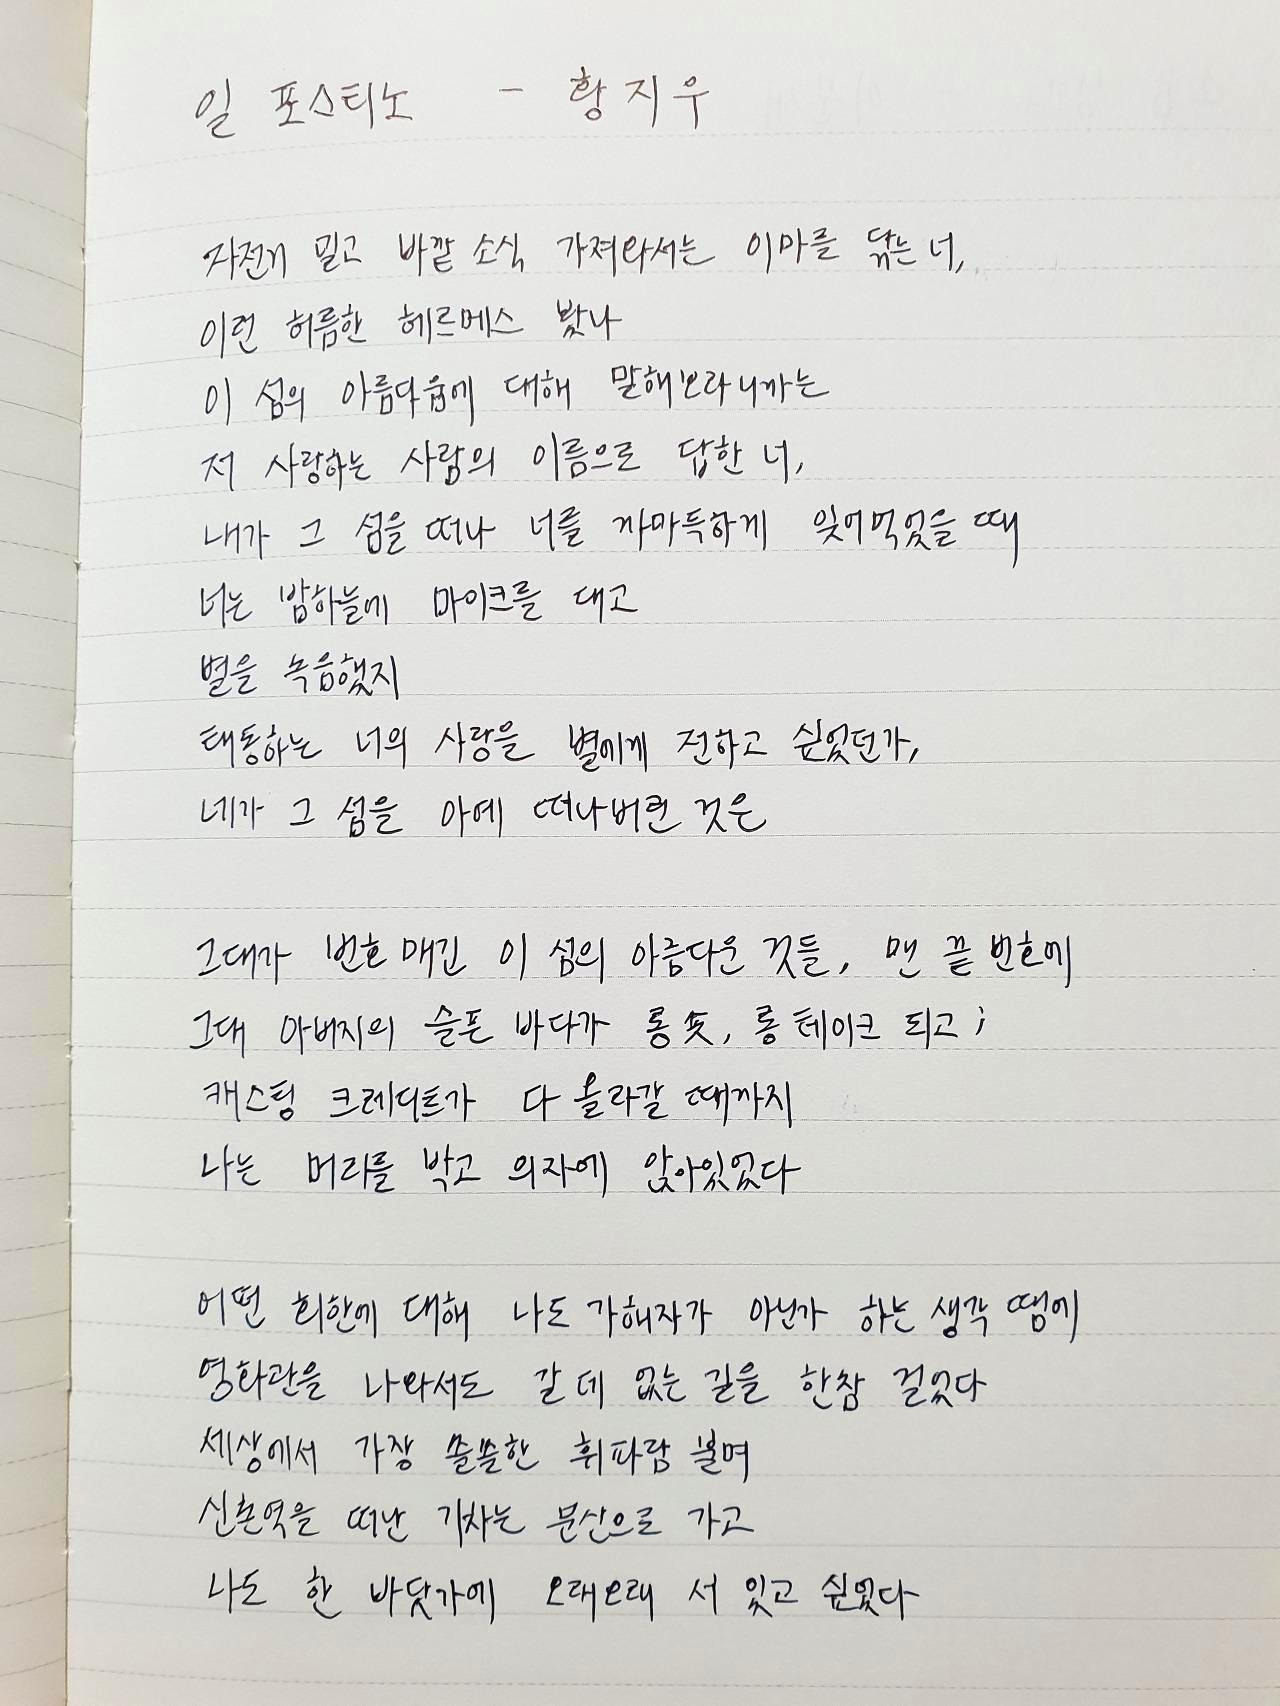 일 포스티노 - 황지우
자전거 밀고 바깥 소식 가져와서는 이마를 닦는 너,
이런 허름한 헤르메스 봤나
이 섬의 아름다움에 대해 말해보라니까는
저 사랑하는 사람의 이름으로 답한 너,
내가 그 섬을 떠나 너를 까마득하게 잊어먹었을 때
너는 밤하늘에 마이크를 대고
별을 녹음했지
태동하는 너의 사랑을 별에게 전하고 싶었던가,
네가 그 섬을 아예 떠나버린 것은
그대가 번호 매긴 이 섬의 아름다운 것들, 맨 끝 번호에
그대 아버지의 슬픈 바다가 롱 숏, 롱 테이크 되고;
캐스팅 크레디트가 다 올라갈 때까지
나는 머리를 박고 의자에 앉아있었다
어떤 회한에 대해 나도 가해자가 아닌가 하는 생각 땜에
영화관을 나와서도 갈 데 없는 길을 한참 걸었다
세상에서 가장 쓸쓸한 휘파람 불며
신촌역을 떠난 기차는 문산으로 가고
나도 한 바닷가에 오래오래 서 있고 싶었다